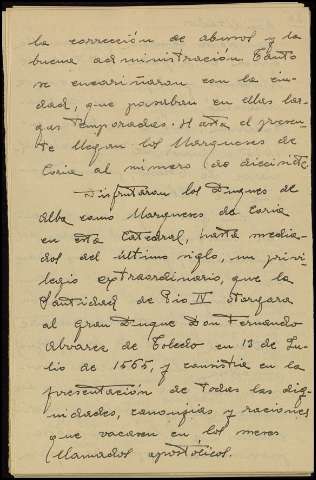 la corrección de abusos y la
buena administración. Tanto
se encariñaron con la ciu-
dad, que pasaban en ellas lar-
gas temporadas. Hasta el presen-
te llegan los Marqueses de
Coria al número de diecisiete
Disfrutaron los Duques de
Alba como Marqueses de Coria
en esta Catedral, hasta media-
dos del último siglo, un privi-
legio extraordinario, que la
Santidad de Pio IV otorgara
al gran Duque Don Fernando
Alvarez de Toledo en 13 de Ju-
lio de 1565, y consistia en la
presentación de todas las dig-
nidades, canongias y raciones
que vacasen en los meses
llamados apostólicos.